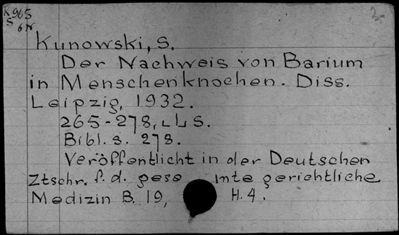 K965
2
S
6N
Kunowski, S.
Der Nachweis von Barium
in Menschenknochen. Diss.
Leipzig, 1932.
265-278, LLS.
Bibl. s. 278.
Veröffentlicht in der Deutschen
Ztschr. f. d. gese mte gerichtliche
Medizin B. 19, H. 4.